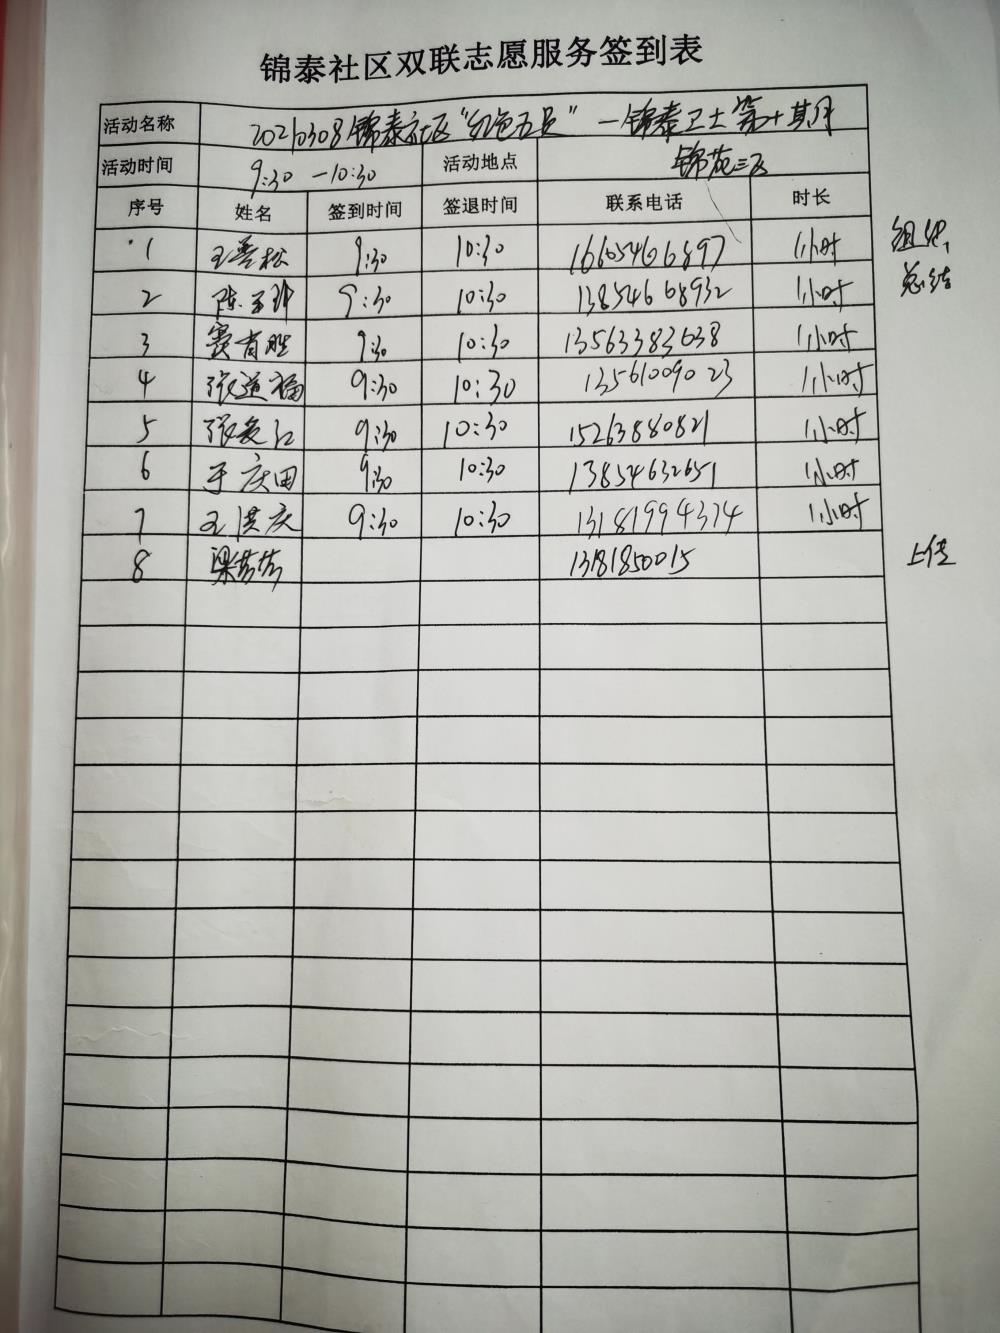 锦泰社区双联志愿服务签到表
活动名称 20210308锦泰社区“红色五员”—锦泰卫士第十期
活动时间 9:30—10:30 活动地点 锦苑三区
序号 姓名 签到时间 签退时间 联系电话 时长
1 王善松 9:30 10:30 16605466897 1小时 组织、
总结
2 陈 9:30 10:30 13854668932 1小时
3 赛肖胜 9:30 10:30 13563383638 1小时
4 张道福 9:30 10:30 13561009023 1小时
5 张爱江 9:30 10:30 15263880821 1小时
6 于庆田 9:30 10:30 13854632651 1小时
7 王洪庆 9:30 10:30 13181994374 1小时
8 梁芳芳 13181850015 上传